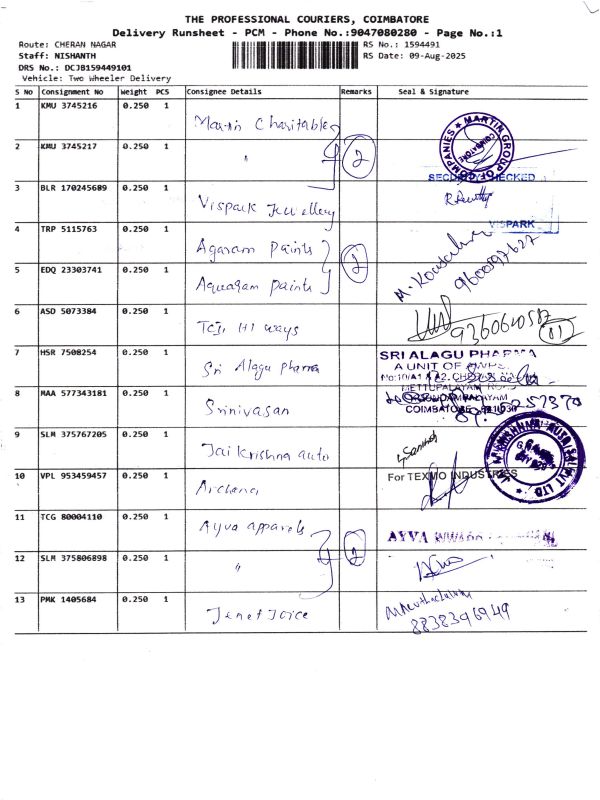 THE PROFESSIONAL COURIERS, COIMBATORE
Delivery Runsheet - PCM - Phone No.:9047080280 - Page No.:1
Route: CHERAN NAGAR
RS No.: 1594491
Staff: NISHANTH
RS Date: 09-Aug-2025
DRS No.: DCJB159449101
Vehicle: Two Wheeler Delivery
S No Consignment No Weight PCS Consignee Details Remarks Seal & Signature
1 KMU 3745216 0.250 1 Martin Charitables
2 KMU 3745217 0.250 1 " 2
MARTIN GROUP OF COMPANIES
COIMBATORE
SECURITY CHECKED
3 BLR 170245609 0.250 1 Vispark Jewellery
VISPARK
4 TRP 5115763 0.250 1 Agaram Paints
5 EDQ 23303741 0.250 1 Aquagam paints 2
9600597627
6 ASD 5073384 0.250 1 Hi ways
9360610587
7 HSR 7508254 0.250 1 Sri Alagu pharma
SRI ALAGU PHARMA
A UNIT OF
METTUPALAYAM ROAD
COIMBATORE
8 MAA 577343181 0.250 1 Srinivasan
9 SLM 375767205 0.250 1 Jai krishna auto
Santhosh
10 VPL 953459457 0.250 1 Archana
For TEXMO INDUSTRIES
11 TCG 80004110 0.250 1 Ayva apparels
AYVA
12 SLM 375806898 0.250 1 " 2
13 PMK 1405684 0.250 1 Jenet Joice
8838396949